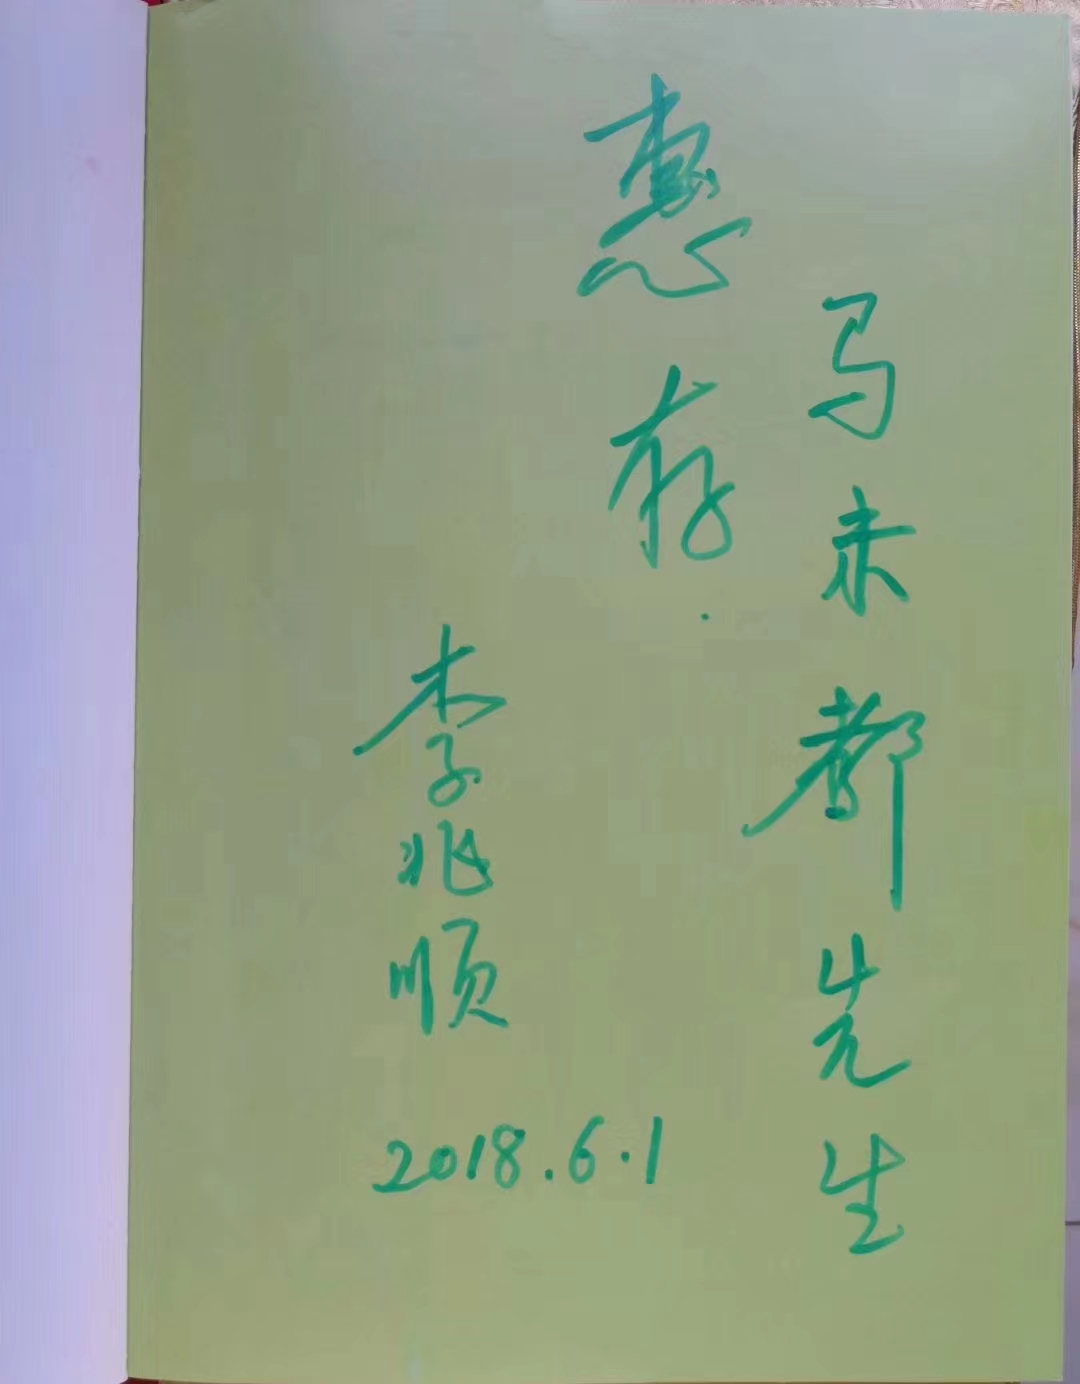 马未都先生
惠存.
李兆顺
2018.6.1